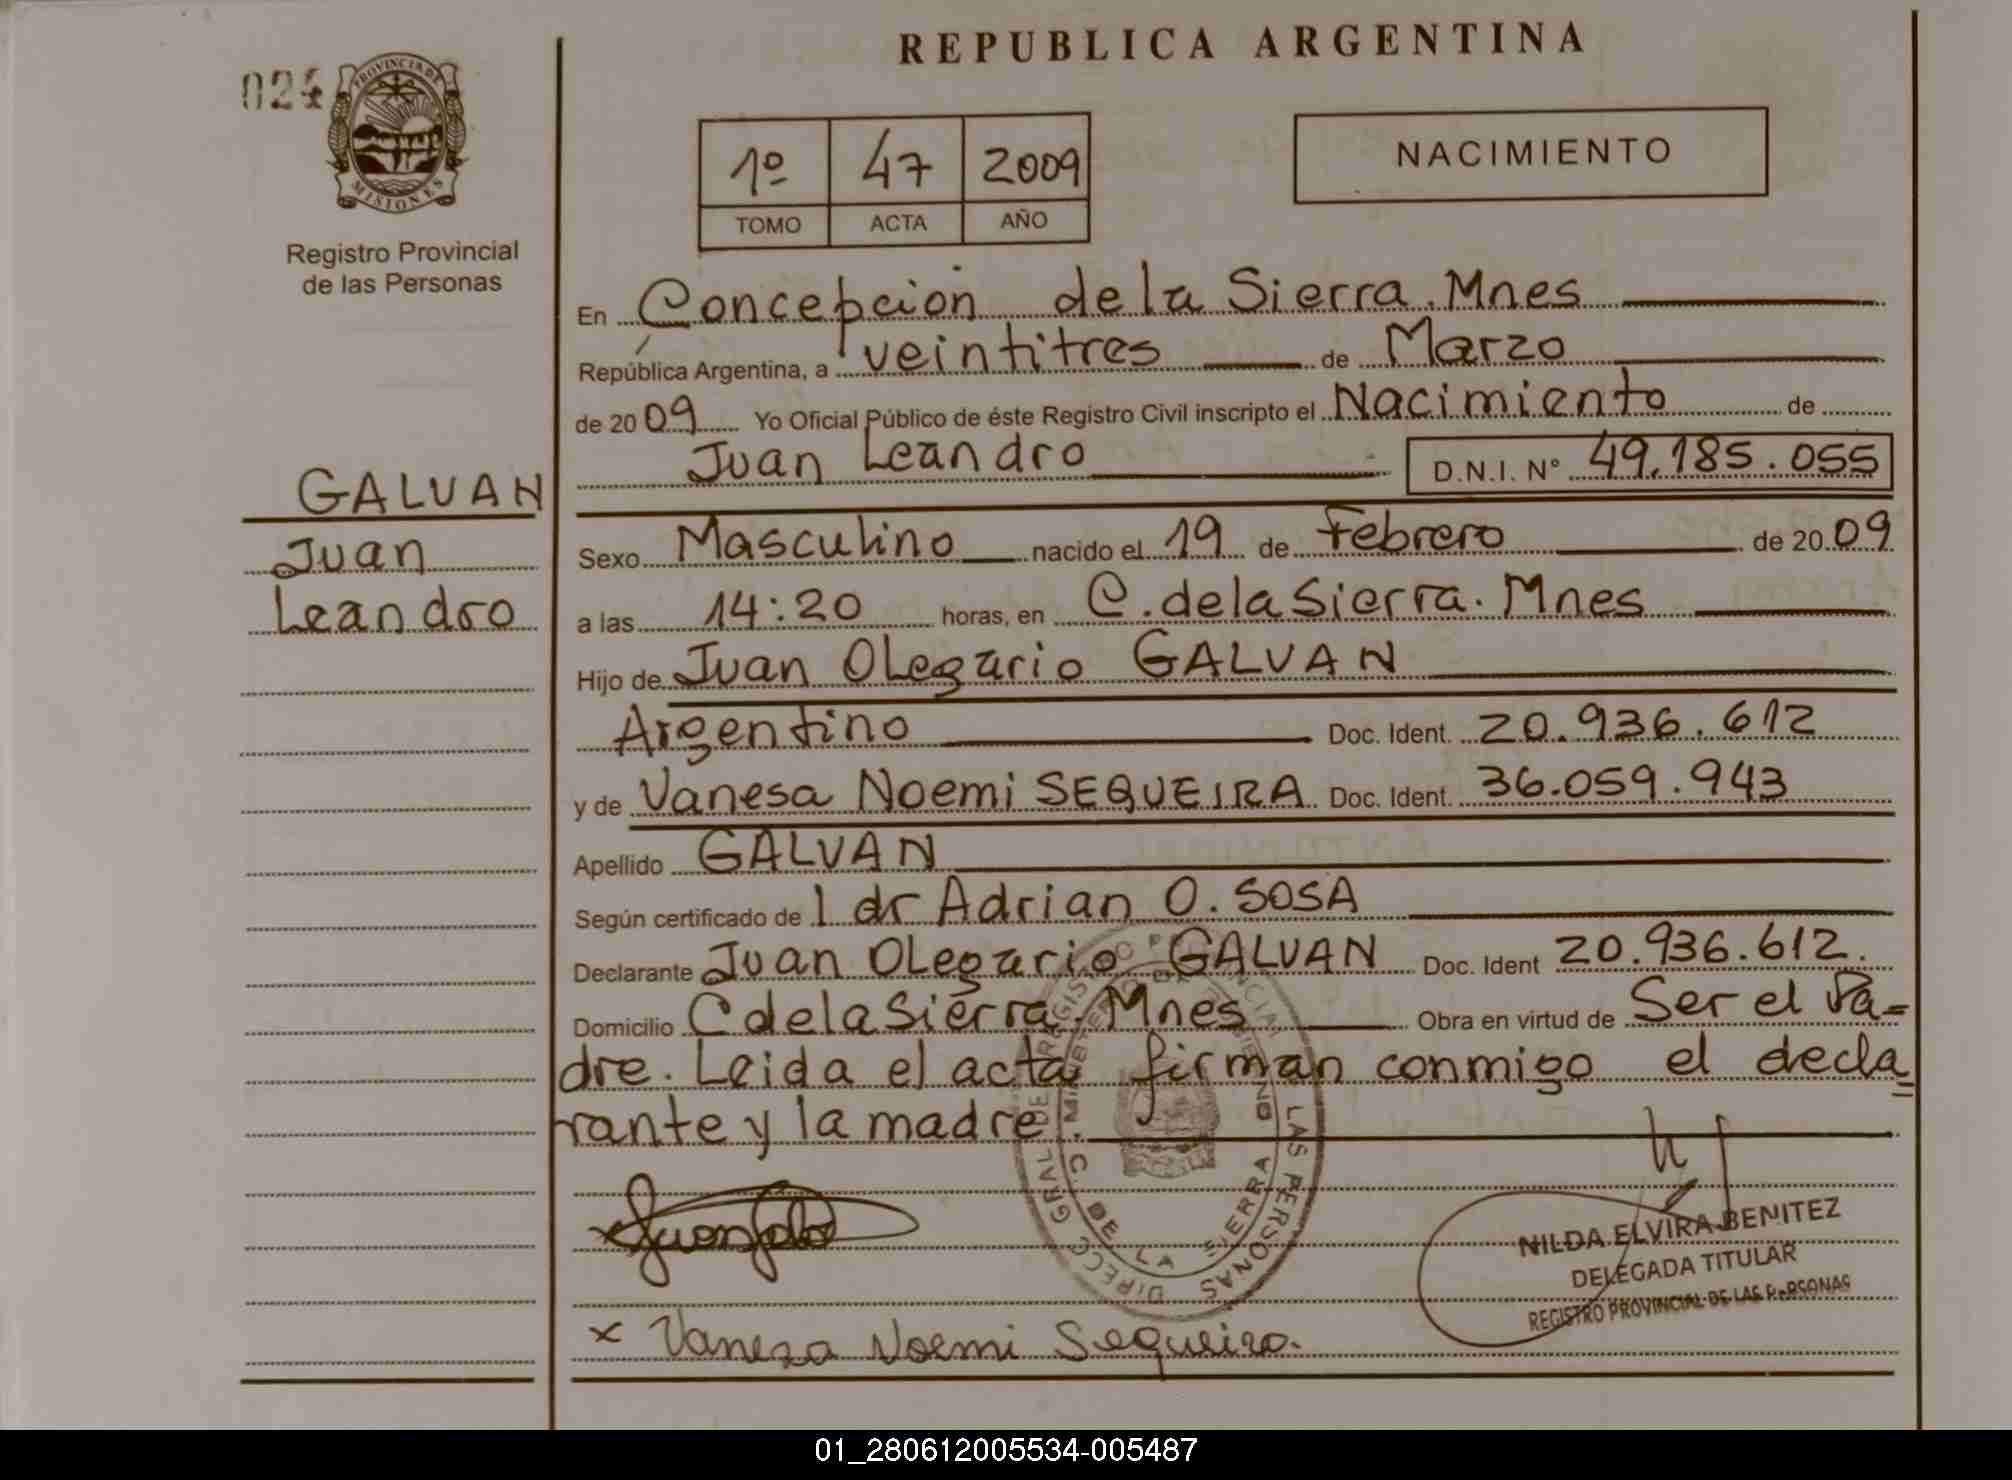 REPUBLICA ARGENTINA
024
PROVINCIA DE
MISIONES
Registro Provincial
de las Personas
1º 47 2009
TOMO ACTA AÑO
NACIMIENTO
En Concepcion de la Sierra. Mnes
República Argentina, a veintitres de Marzo
de 2009 Yo Oficial Público de éste Registro Civil inscripto el Nacimiento de
Juan Leandro D.N.I. Nº 49.185.055
GALVAN
Juan
Leandro
Sexo Masculino nacido el 19 de Febrero de 2009
a las 14:20 horas, en C. de la Sierra. Mnes
Hijo de Juan Olegario GALVAN
Argentino Doc. Ident. 20.936.612
y de Vanesa Noemi SEQUEIRA Doc. Ident. 36.059.943
Apellido GALVAN
Según certificado de l dr Adrian O. SOSA
Declarante Juan Olegario GALVAN Doc. Ident 20.936.612.
Domicilio C de la Sierra. Mnes Obra en virtud de Ser el Pa=
dre. Leida el acta firman conmigo el decla=
rante y la madre
DIRECC. GRAL. DE REGISTRO PROVINCIAL DE LAS PERSONAS
C. DE LA SIERRA
NILDA ELVIRA BENITEZ
DELEGADA TITULAR
REGISTRO PROVINCIAL DE LAS PERSONAS
x Vanesa Noemi Sequeira.
01_280612005534-005487